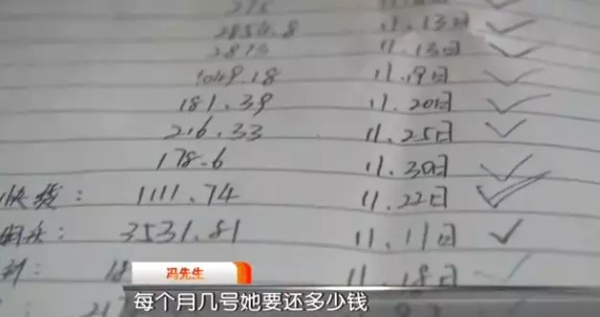 2854.8 11.13日
2813 11.13日
1049.18 11.19日
181.39 11.20日
216.33 11.25日
178.6 11.30日
快钱: 1111.74 11.22日
3531.81 11.11日
18 11.18日
冯先生
每个月几号她要还多少钱